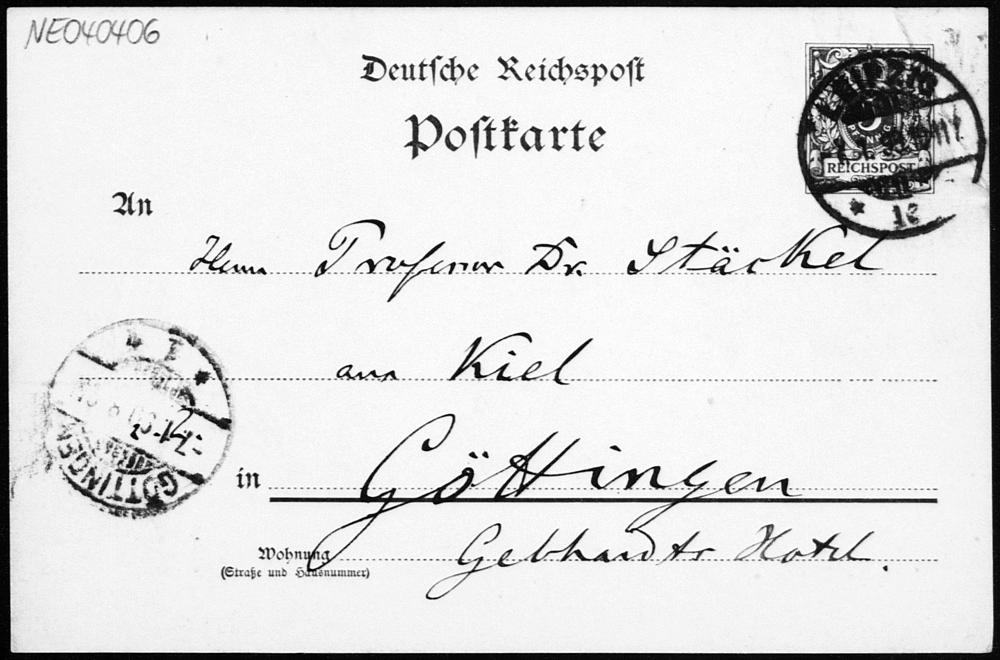 NE040406
Deutsche Reichspost
Postkarte
LEIPZIG
PFENNIG
REICHSPOST
An
Herrn Professor Dr. Stäckel
aus Kiel
GÖTTINGEN
in Göttingen
Wohnung
(Straße und Hausnummer)
Gebhardts Hotel.